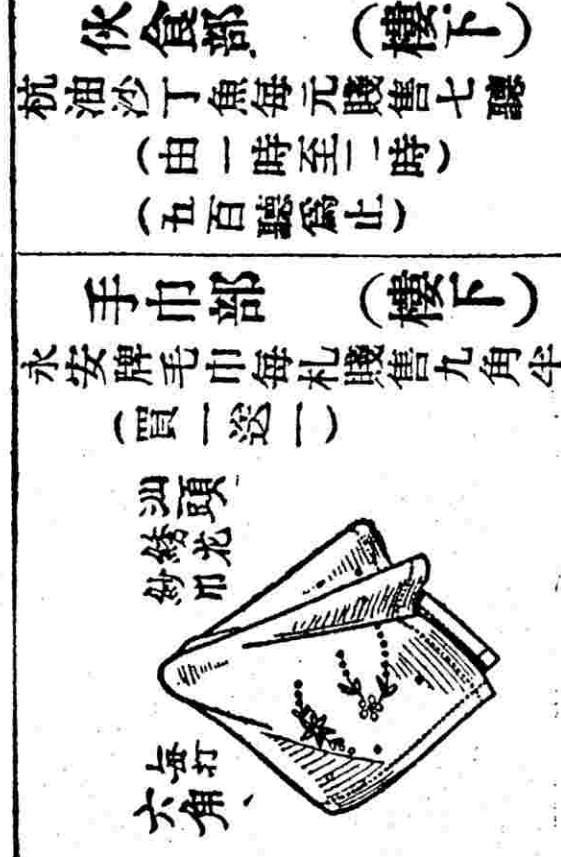 伙食部 (樓下)
杭油沙丁魚每元賤售七聽
(由一時至二時)
(五百聽為止)
手巾部 (樓下)
永安牌毛巾每札賤售九角半
(買一送一)
汕頭
綉花
紗巾
每打
六角